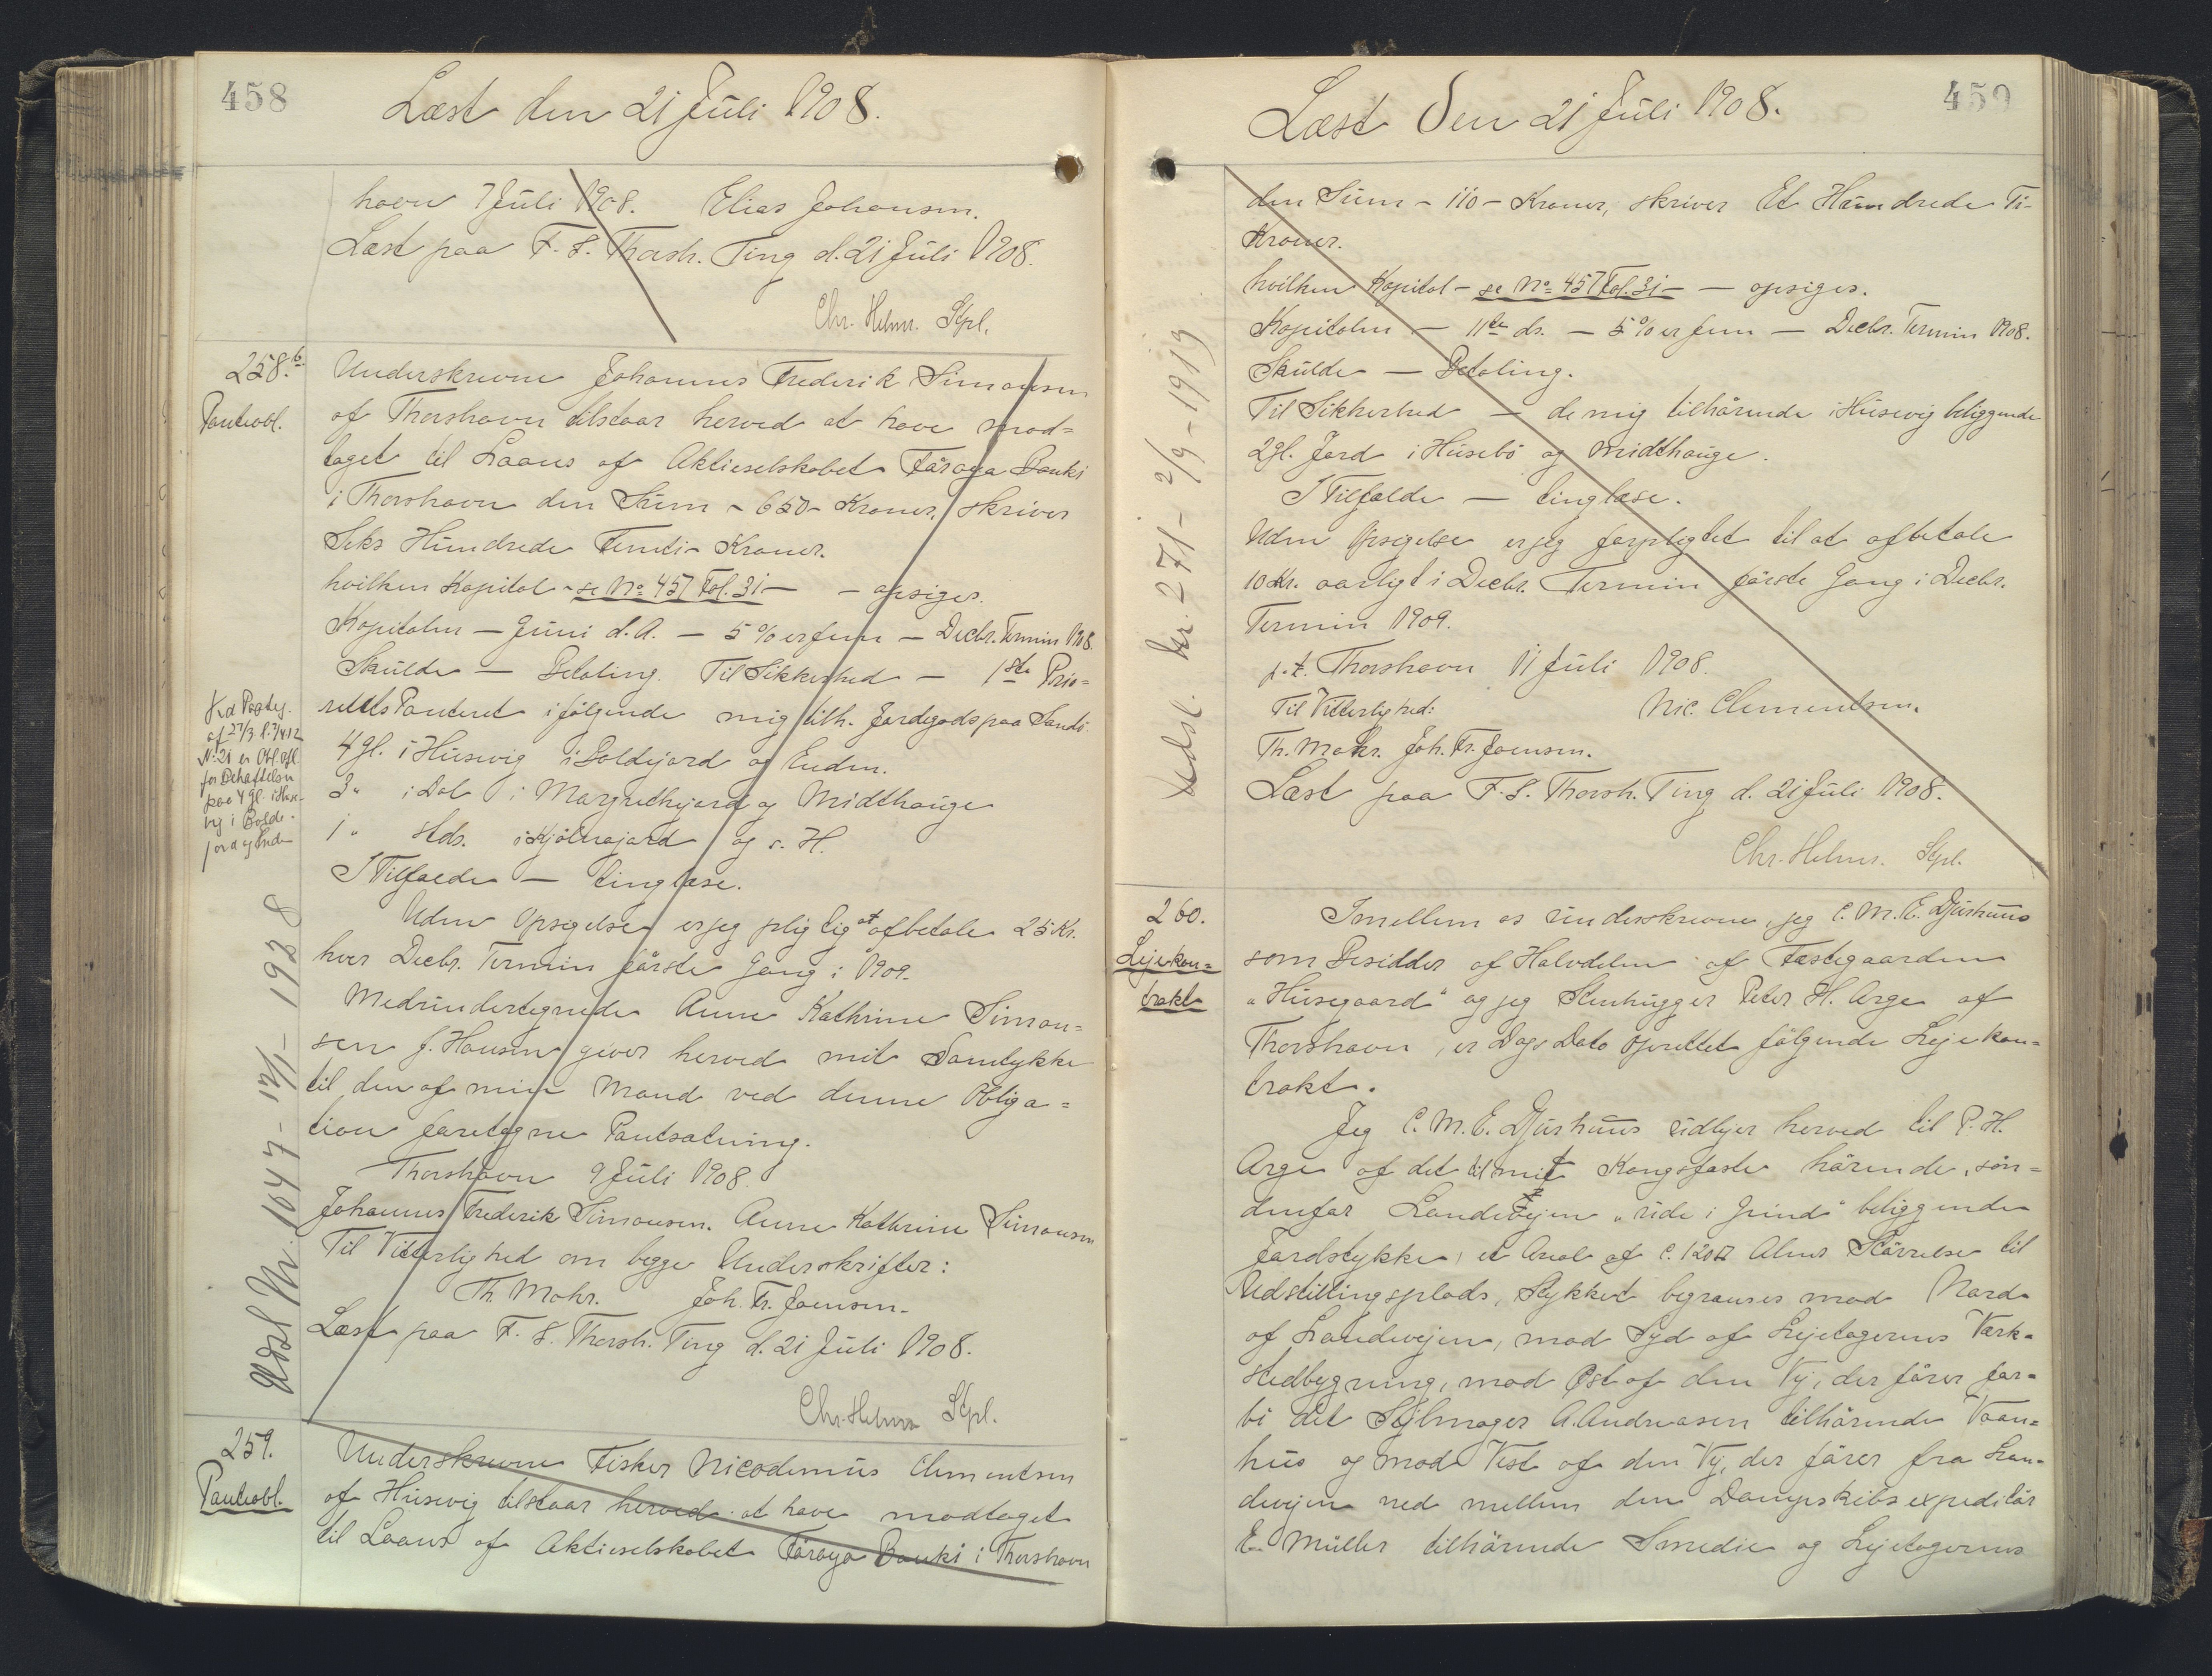 458
Læst den 21 Juli 1908.
havn 7 Juli 1908. Elias Johansen.
Læst paa F. S. Thorsh. Ting d. 21 Juli 1908.
Chr. Helmr. Stpl.
258.b
Panteobl.
Underskrevne Johannes Frederik Simonsen
af Thorshavn tilstaar herved at have mod=
taget til Laans af Aktieselskabet Føroya Banki
i Thorshavn den Sum - 650 - Kroner, skriver
Seks Hundrede Femti - Kroner.
hvilken Kapital - se No. 457 Fol. 31 - - opsiges.
Kapitalen - Juni d. A. - 5 % er fem - Decbr. Termin 1908.
Skulde - Betaling. Til Sikkerhed - 1ste Prio=
ritets Panteret i følgende mig tilh. Jordegods paa Sandø
4 gl. i Husevig i Boldijord og Enden.
3 " i Dal i Margrethejord og Midthauge
1 " stds. i Kjölnajord og s. H.
I Tilfælde - tinglæse.
Uden Opsigelse er jeg pligtig at afbetale 25 Kr.
hver Decbr. Termin første Gang i 1909.
Medundertegnede Anne Kathrine Simon=
sen f. Hansen giver herved mit Samtykke
til den af min Mand ved denne Obliga=
tion foretagne Pantsætning.
Thorshavn 9 Juli 1908.
Johannes Frederik Simonsen. Anne Kathrine Simonsen
Til Vitterlighed om begge Underskrifter:
Th. Mohr. Joh. Fr. Joensen.
Læst paa F. S. Thorsh. Ting d. 21 Juli 1908.
Chr. Helmr. Stpl.
af 27/3 l. 2/4 12
N. 21 er Obl.
for Behæftelsen
paa 4 gl. i Huse-
vig i Bolde-
jord og Enden
Udsl Nr. 1047 - 12/1 - 1928
259.
Panteobl.
Underskrevne Fisker Nicodemus Clementsen
af Husevig tilstaar herved at have modtaget
til Laans af Aktieselskabet Føroya Banki i Thorshavn
459
Læst Den 21 Juli 1908.
den Sum - 110 - Kroner, skriver Et Hundrede Ti -
Kroner.
hvilken Kapital - se No. 457 Fol. 31 - - opsiges.
Kapitalen - 11te ds. - 5 % er fem - Decbr. Termin 1908.
Skulde - Betaling.
Til Sikkerhed - de mig tilhørende i Husevig beliggende
2 gl. Jord i Husebø og Midthauge.
I Tilfælde - tinglæse.
Uden Opsigelse er jeg forpligtet til at afbetale
10 Kr. aarligt i Decbr. Termin første Gang i Decbr.
Termin 1909.
p.t. Thorshavn 11 Juli 1908.
Til Vitterlighed: Nic. Clementsen.
Th. Mohr. Joh. Fr. Joensen.
Læst paa F. S. Thorsh. Ting d. 21 Juli 1908.
Chr. Helmr. Stpl.
Udsl. Nr. 271 - 2/9 - 1913
260.
Lejekon=
trakt
Imellem os underskrevne, jeg C. M. E. Djurhuus
som Besidder af Halvdelen af Fæstegaarden
"Husegaard" og jeg Stenhugger Peter H. Arge af
Thorshavn, er Dags Dato oprettet følgende Lejekon=
trakt.
Jeg C. M. E. Djurhuus udlejer herved til P. H.
Arge af det til mit Kongsfæste hørende, søn=
denfor Landevejen "ude i Grind" beliggende
Jordstykke, et Areal af c. 120 □ Alens Størrelse til
Udstillingsplads, Stykket begrænses mod Nord
af Landevejen, mod Syd af Lejetagerens Værk=
stedbygning, mod Øst af den Vej, der fører for=
bi det Hjulmager A. Andreasen tilhørende Vaan=
hus og mod Vest af den Vej, der fører fra Lan=
devejen ned mellem den Dampskibsexpeditør
E. Müller tilhørende Smedie og Lejetagerens